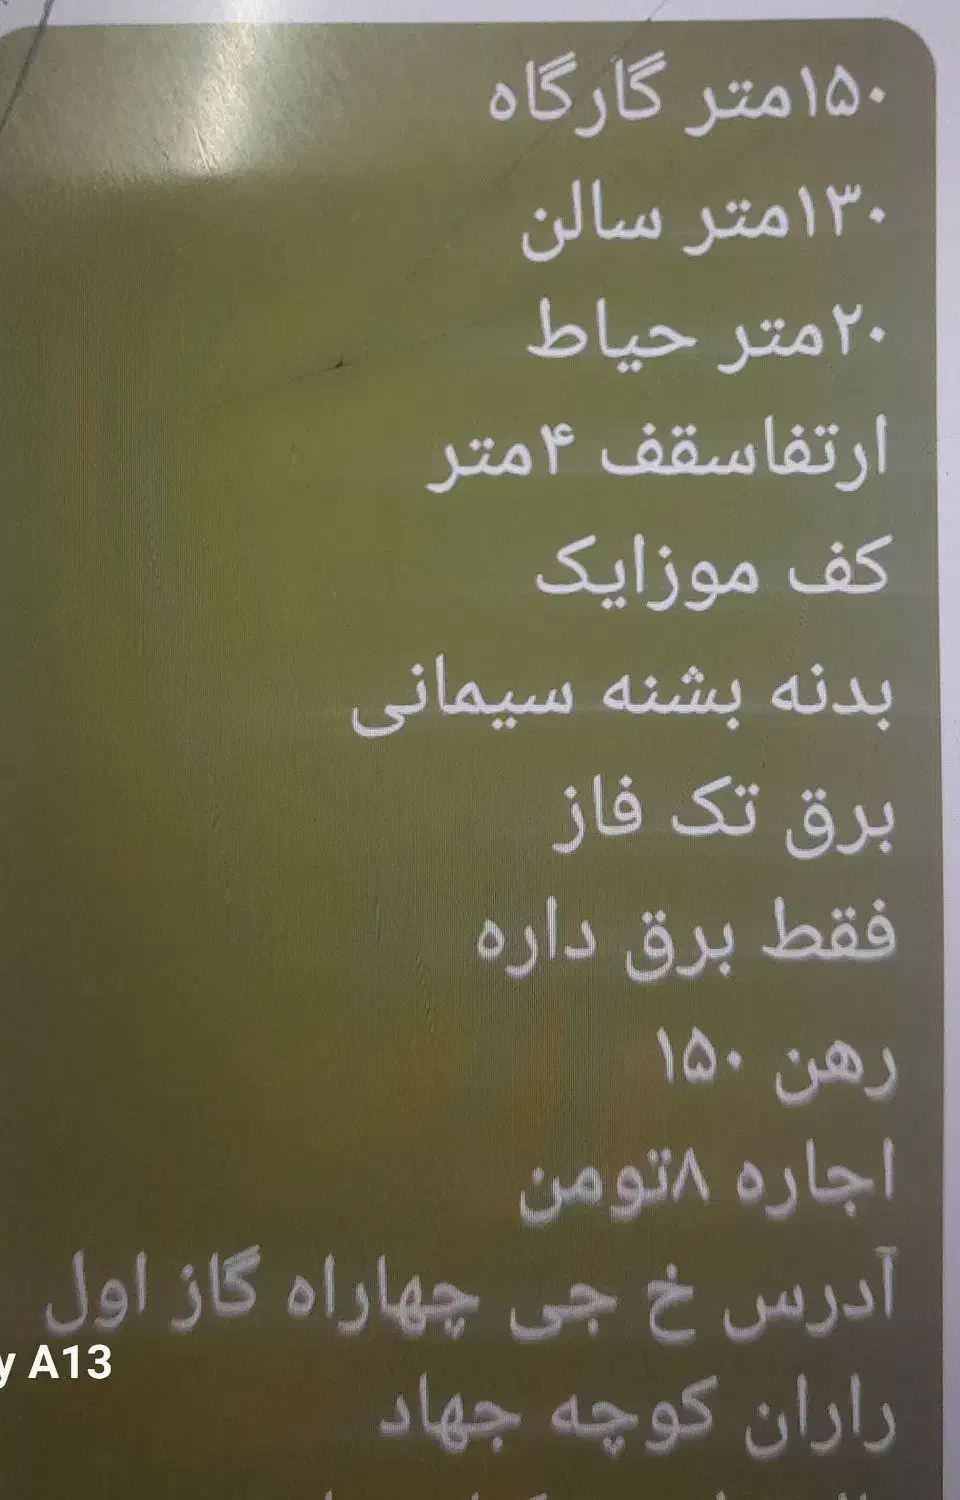 ۱۵۰متر گارگاه
۱۳۰متر سالن
۲۰متر حیاط
ارتفاسقف ۴متر
کف موزایک
بدنه بشنه سیمانی
برق تک فاز
فقط برق داره
رهن ۱۵۰
اجاره ۸تومن
آدرس خ جی چهاراه گاز اول
y A13
راران کوچه جهاد